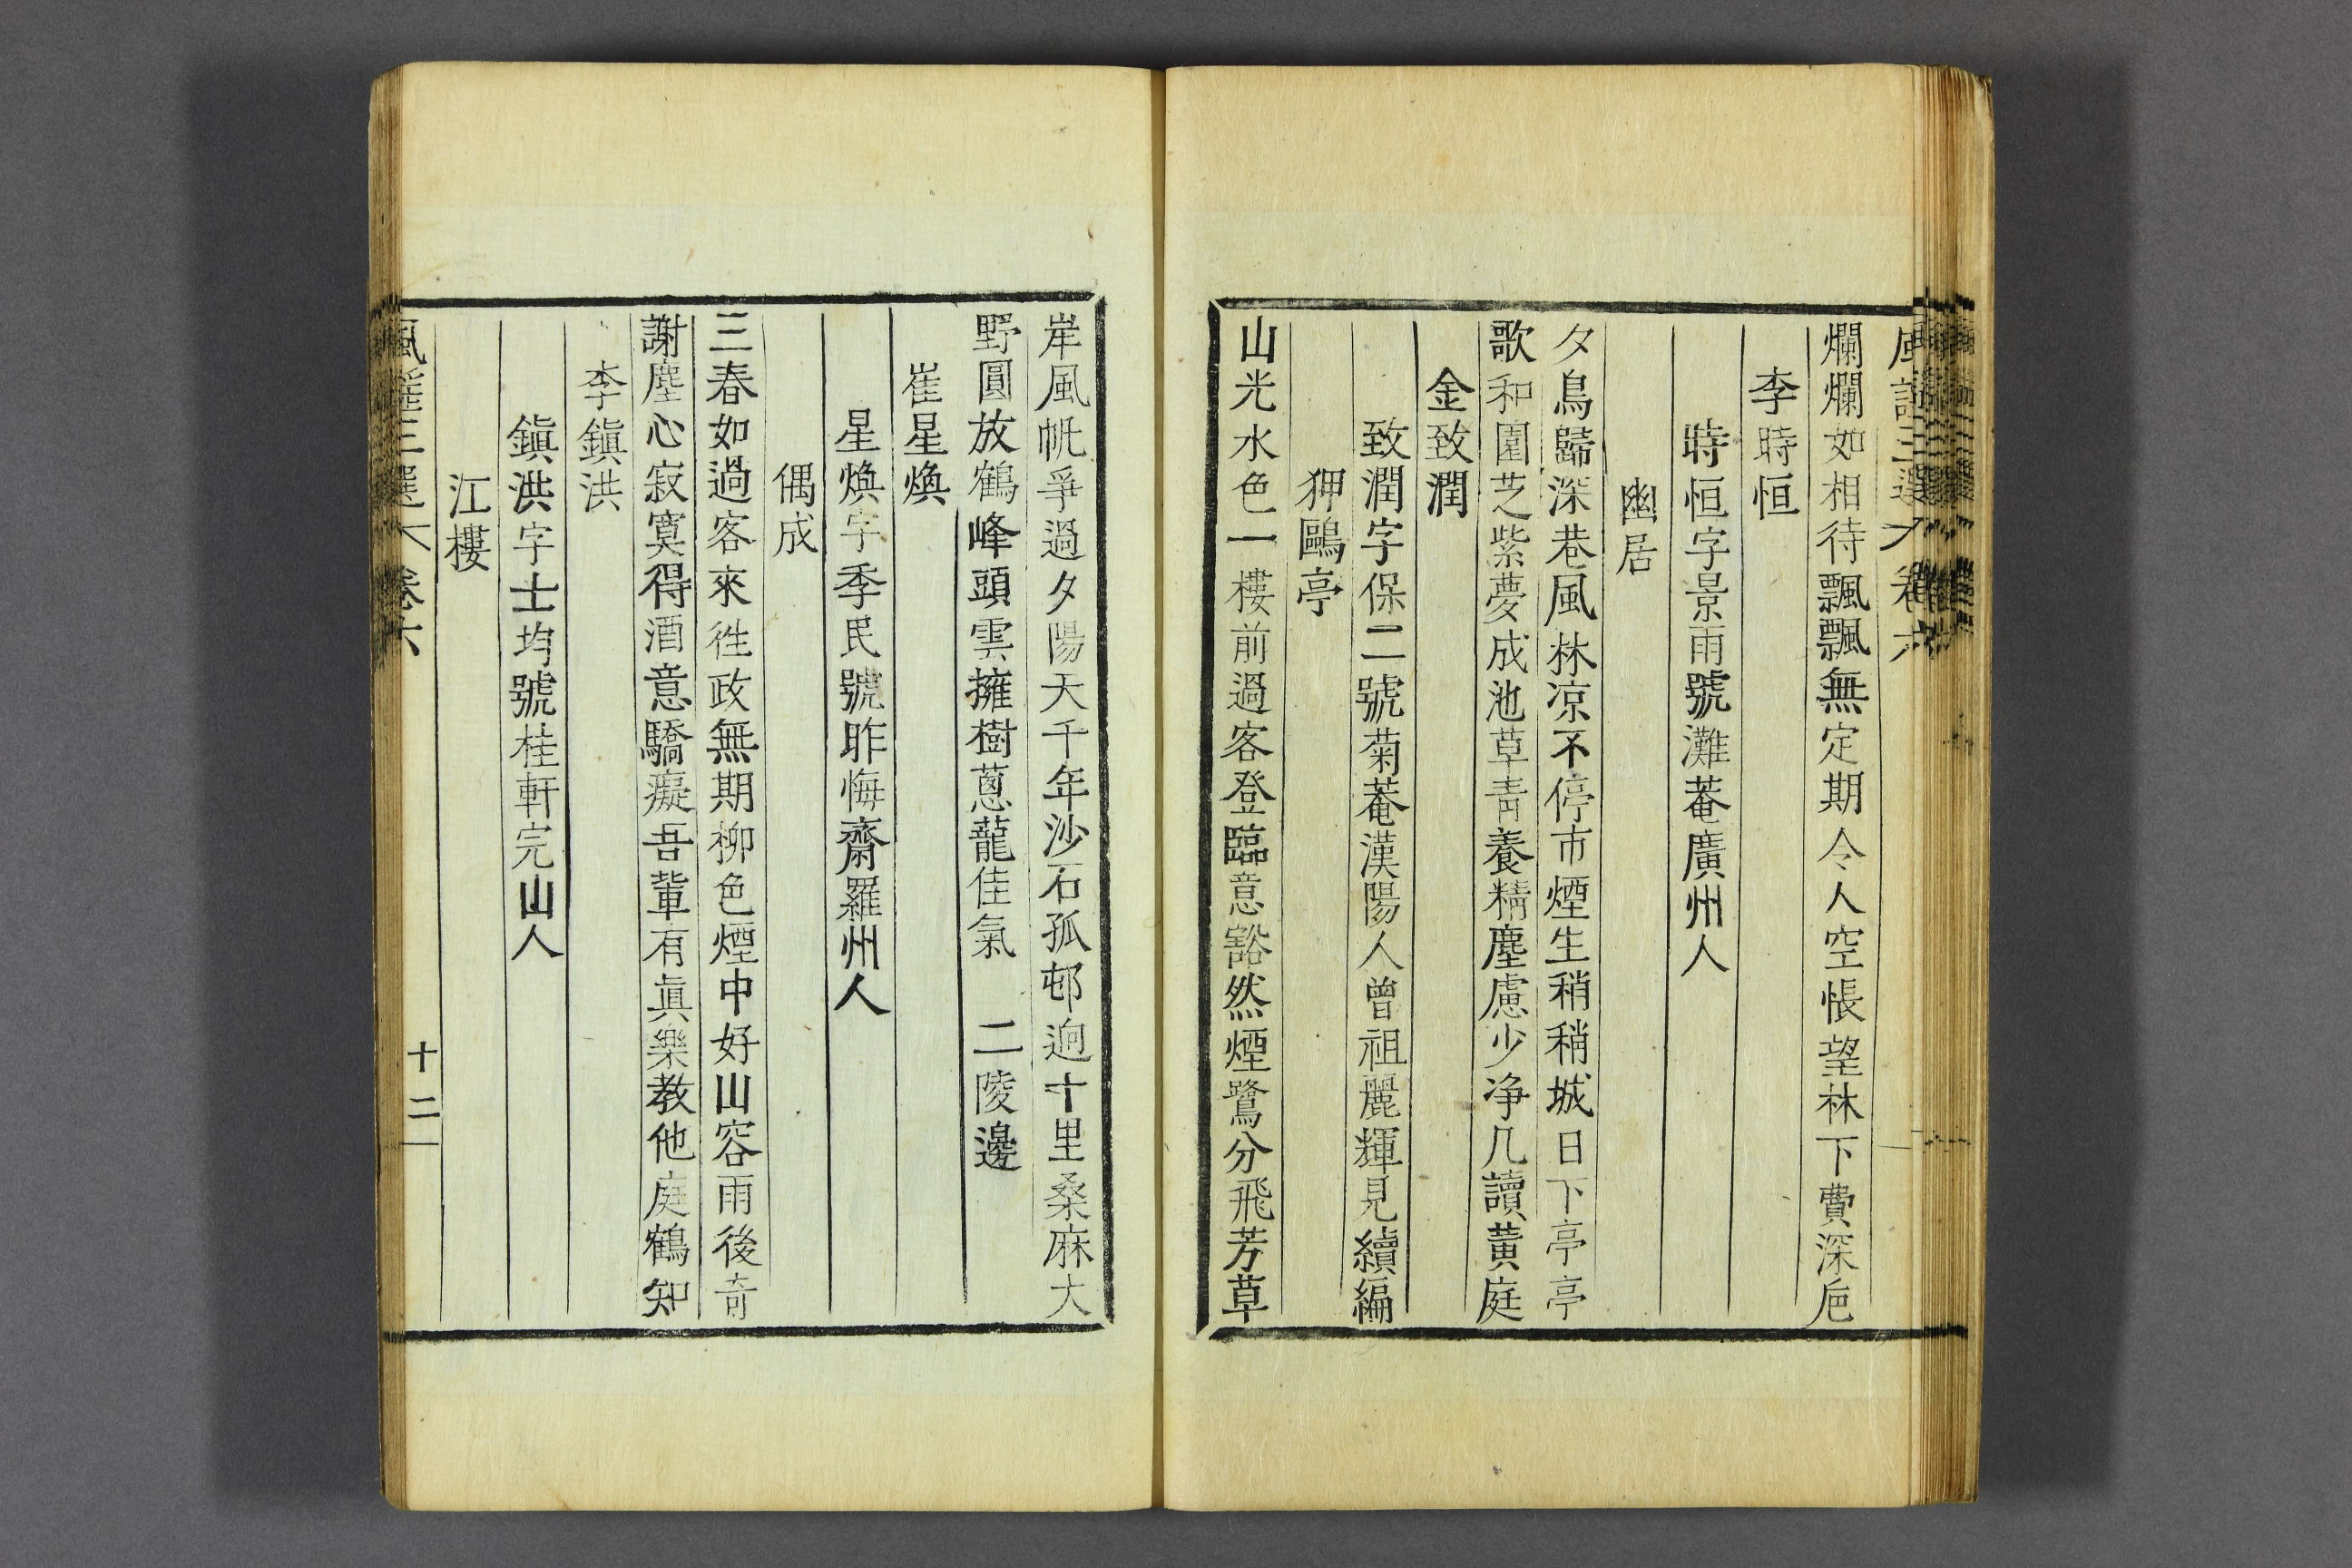 爛爛如相待飄飄無定期令人空悵望林下費深巵
李時恒
時恒字景雨號灘菴廣州人
幽居
夕鳥歸深巷風林凉不停市煙生稍稍城日下亭亭
歌和園芝紫夢成池草青養精塵慮少净几讀黃庭
金致潤
致潤字保二號菊菴漢陽人曾祖麗輝見續編
狎鷗亭
山光水色一樓前過客登臨意豁然煙鷺分飛芳草
岸風帆爭過夕陽天千年沙石孤邨逈十里桑麻大
野圓放鶴峰頭雲擁樹蔥蘢佳氣二陵邊
崔星煥
星煥字季民號昨悔齋羅州人
偶成
三春如過客來徃政無期柳色煙中好山容雨後奇
謝塵心寂寞得酒意驕癡吾輩有眞樂教他庭鶴知
李鎭洪
鎭洪字士均號桂軒完山人
江樓
風謠三選 卷六
十二